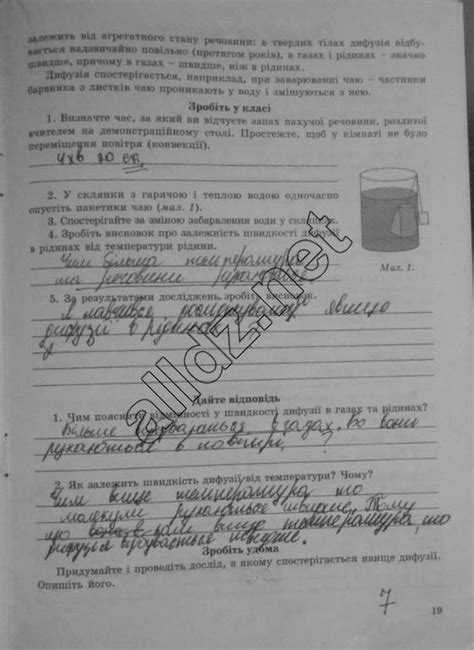 залежить від агрегатного стану речовини: в твердих тілах дифузія відбу-
вається надзвичайно повільно (протягом років), в газах і рідинах – значно
швидше, причому в газах – швидше, ніж в рідинах.
Дифузія спостерігається, наприклад, при заварюванні чаю – частинки
барвника з листків чаю проникають у воду і змішуються з нею.
Зробіть у класі
1. Визначте час, за який ви відчуєте запах пахучої речовини, розлитої
вчителем на демонстраційному столі. Простежте, щоб у кімнаті не було
переміщення повітря (конвекції).
4хв 20 с
2. У склянки з гарячою і теплою водою одночасно
опустіть пакетики чаю (мал. 1).
3. Спостерігайте за зміною забарвлення води у склянках.
4. Зробіть висновок про залежність швидкості дифузії
в рідинах від температури рідини.
Чим більша температура
та речовини рухаються
Мал. 1.
5. За результатами досліджень зробіть висновок.
Я навчився явище
дифузії в рідинах
Дайте відповідь
1. Чим пояснити відмінності у швидкості дифузії в газах та рідинах?
Більше відбувається в газах, бо вони
рухаються в повітрі
2. Як залежить швидкість дифузії від температури? Чому?
Чим вище температура то
молекули рухаються швидше. Тому
що коли вище температура, то
дифузія відбувається швидше.
Зробіть удома
Придумайте і проведіть дослід, в якому спостерігається явище дифузії.
Опишіть його.
7
19
alldz.net